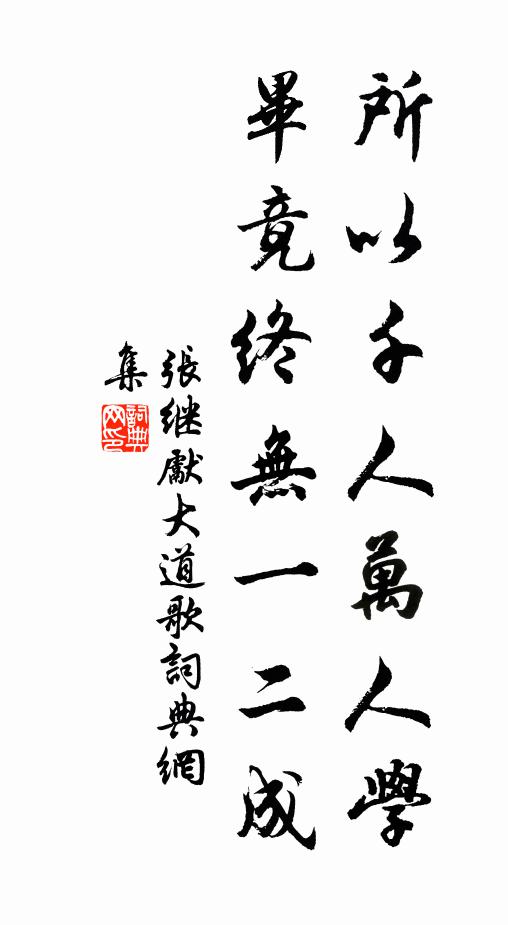 所以千人萬人學
畢竟終無一二成
張继獻大道歌詞典網
集
詞典
网印